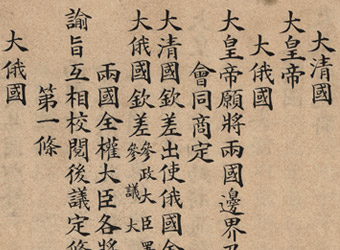 大清國
大皇帝
大俄國
大皇帝願將兩國邊界及
會同商定
大清國欽差出使俄國全
大俄國欽差參政大臣署大議
兩國全權大臣各將
諭旨互相校閱後議定條
第一條
大俄國